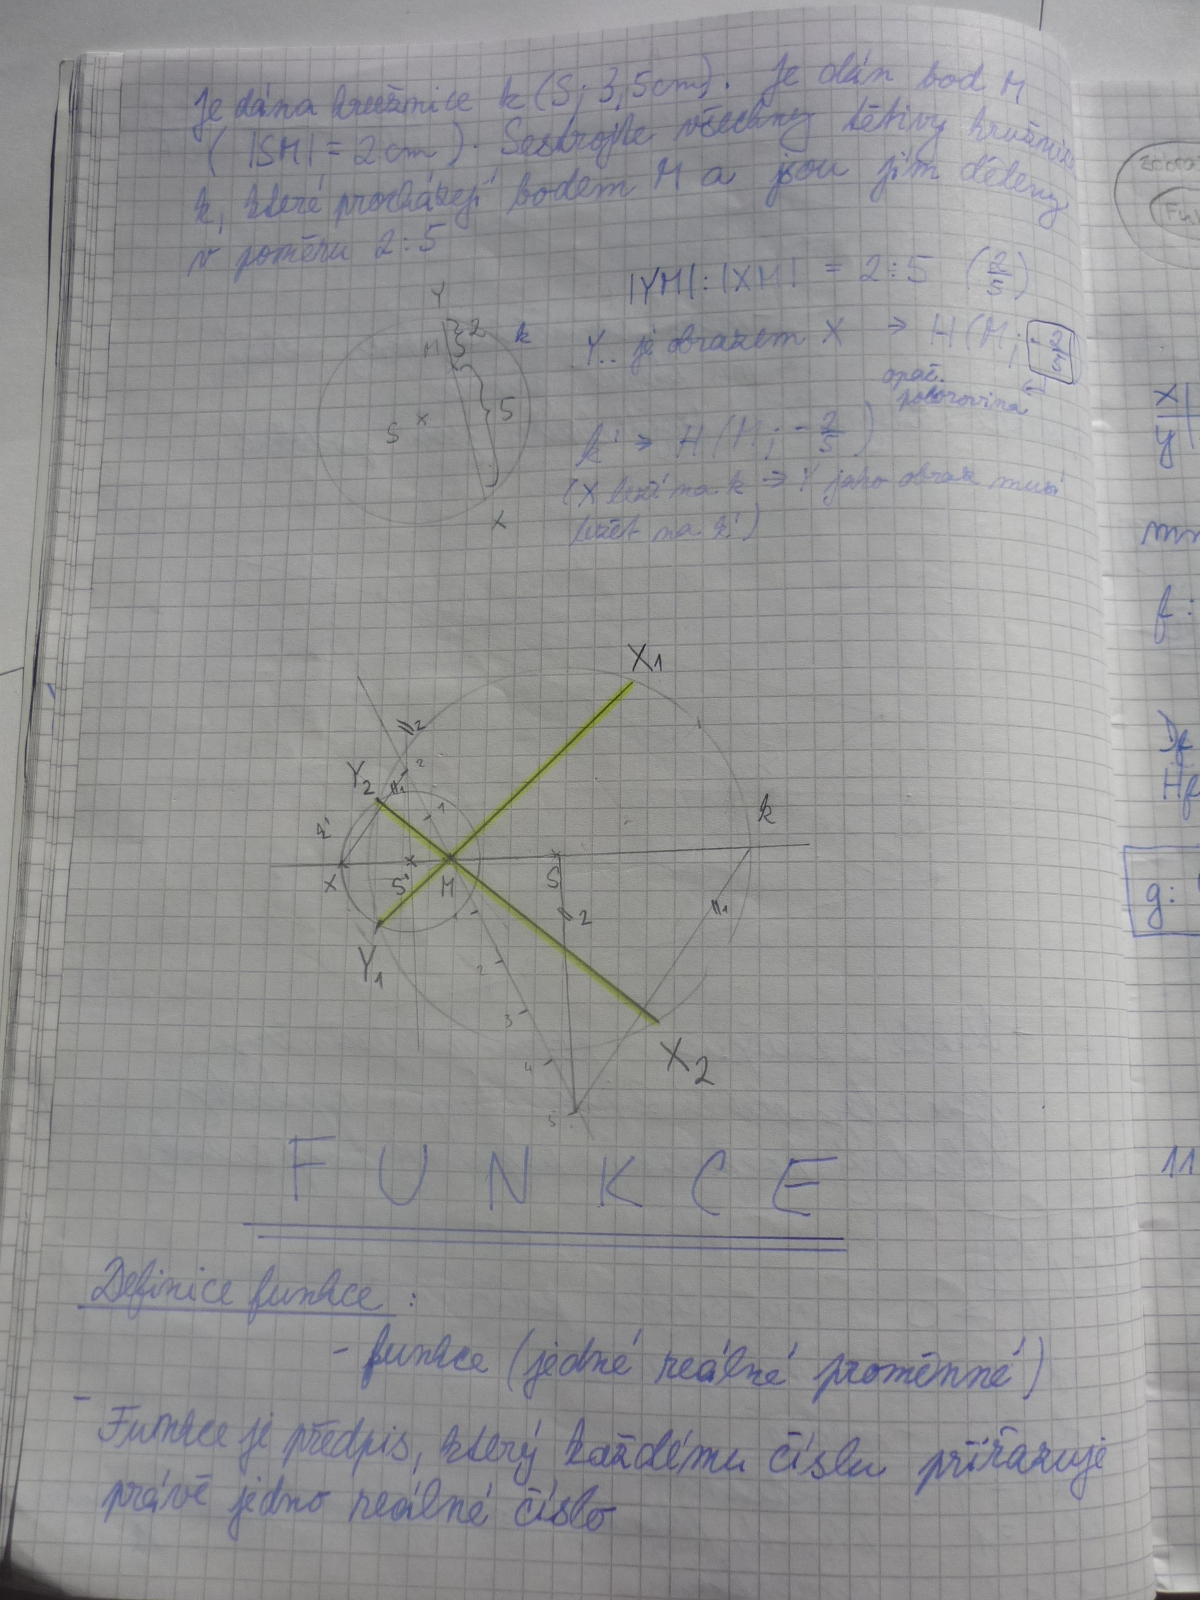 Je dána kružnice k (S; 3,5cm). Je dán bod M
( |SM| = 2cm ). Sestrojte všechny tětivy kružnice
k, které procházejí bodem M a jsou jím děleny
v poměru 2:5
|YM|:|XM| = 2:5 (2/5)
Y.. je obrazem X ⇒ H(M; -2/5)
opač.
polorovina
k' ⇒ H(M; -2/5)
(X leží na k ⇒ Y jako obraz musí
ležet na k')
Y
M
2
k
5
S
X
X1
//2
Y2
2
//1
1
k
k'
X
S'
M
S
2
//1
Y1
2
3
4
5
X2
FUNKCE
Definice funkce:
- funkce (jedné reálné proměnné)
- Funkce je předpis, který každému číslu přiřazuje
právě jedno reálné číslo
x
y
f:
Df
Hf
g:
11